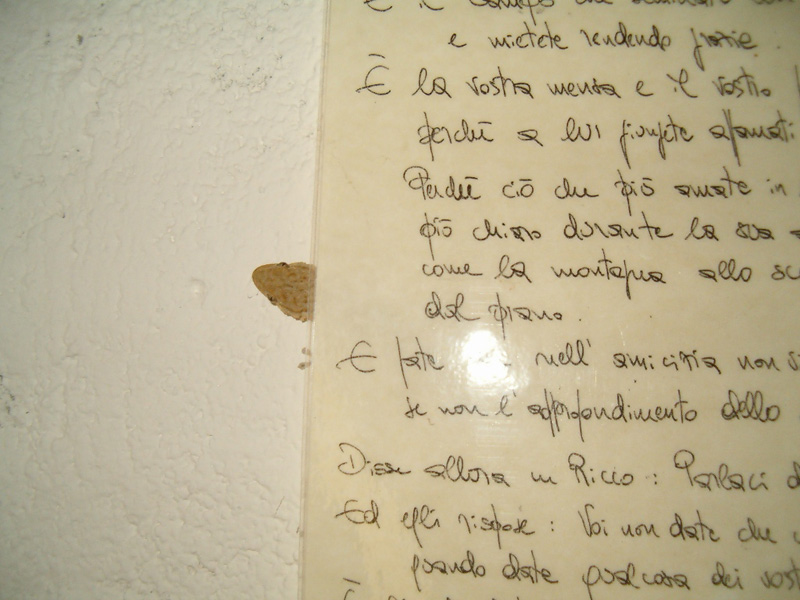 È il campo che
e mietete rendendo grazie.
È la vostra mensa e il vostro
perchè a lui giungete affamati
Perchè ciò che più amate in
più chiaro durante la sua
come la montagna allo sc
dal piano.
E fate nell'amicizia non
se non l'approfondimento dello
Disse allora un Ricco: Parlaci d
Ed egli rispose: Voi non date che
quando date qualcosa dei vost